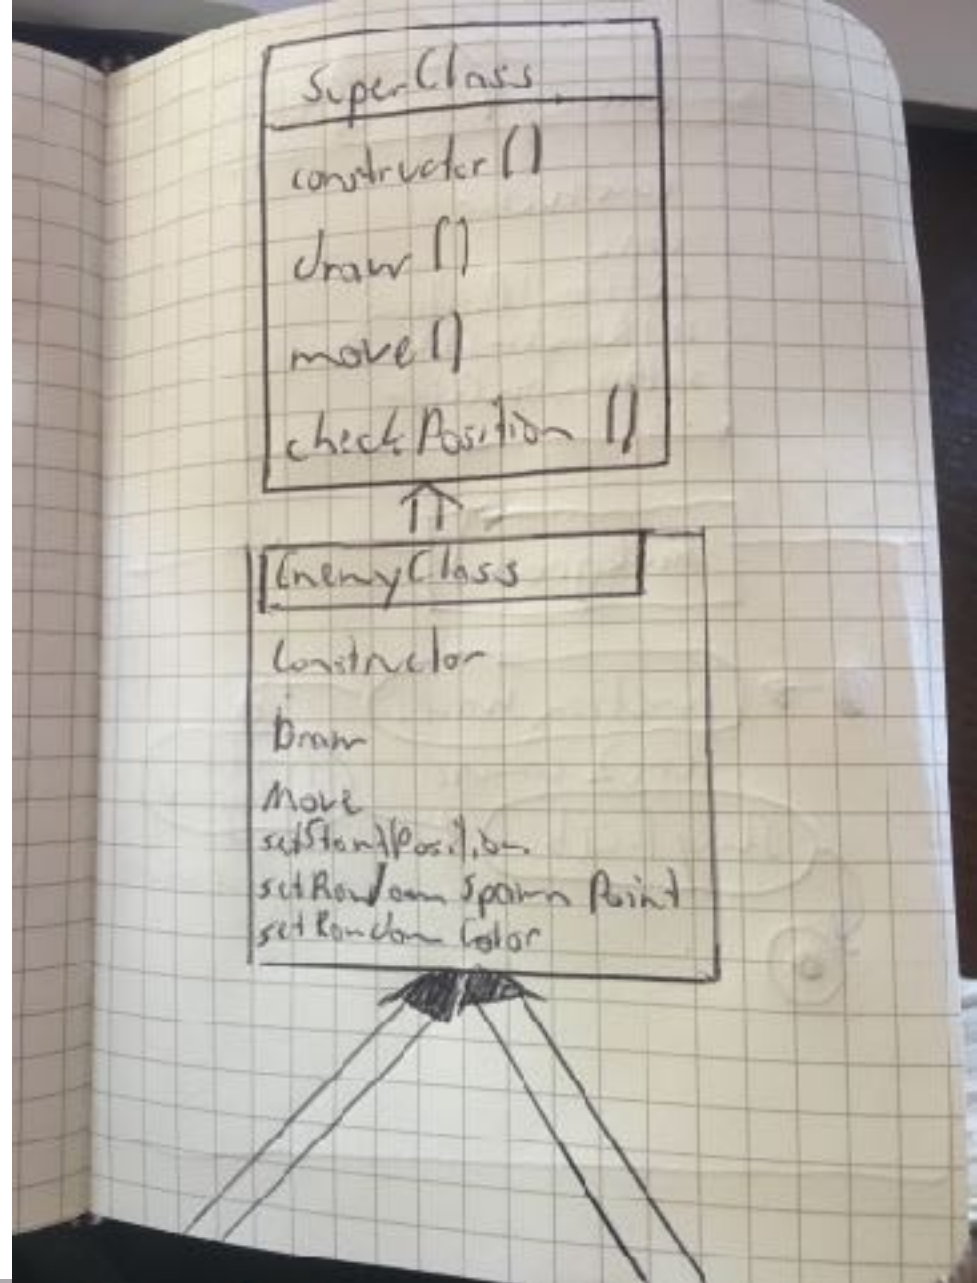 SuperClass
constructor()
draw()
move()
checkPosition()
EnemyClass
Constructor
Draw
Move
setStartPosition
setRandom Spawn Point
setRandom Color